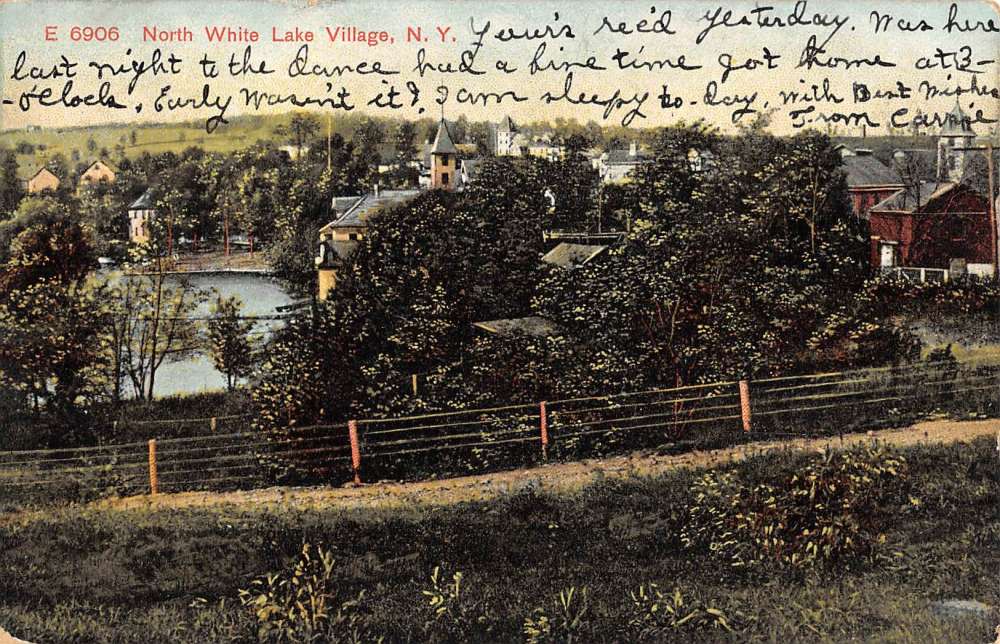 E 6906 North White Lake Village, N. Y.
Your's rec'd Yesterday. Was here
last night to the dance had a fine time got home at 3-
-o'clock. Early Wasn't it? I am sleepy to-day, with Best Wishes
From Carrie